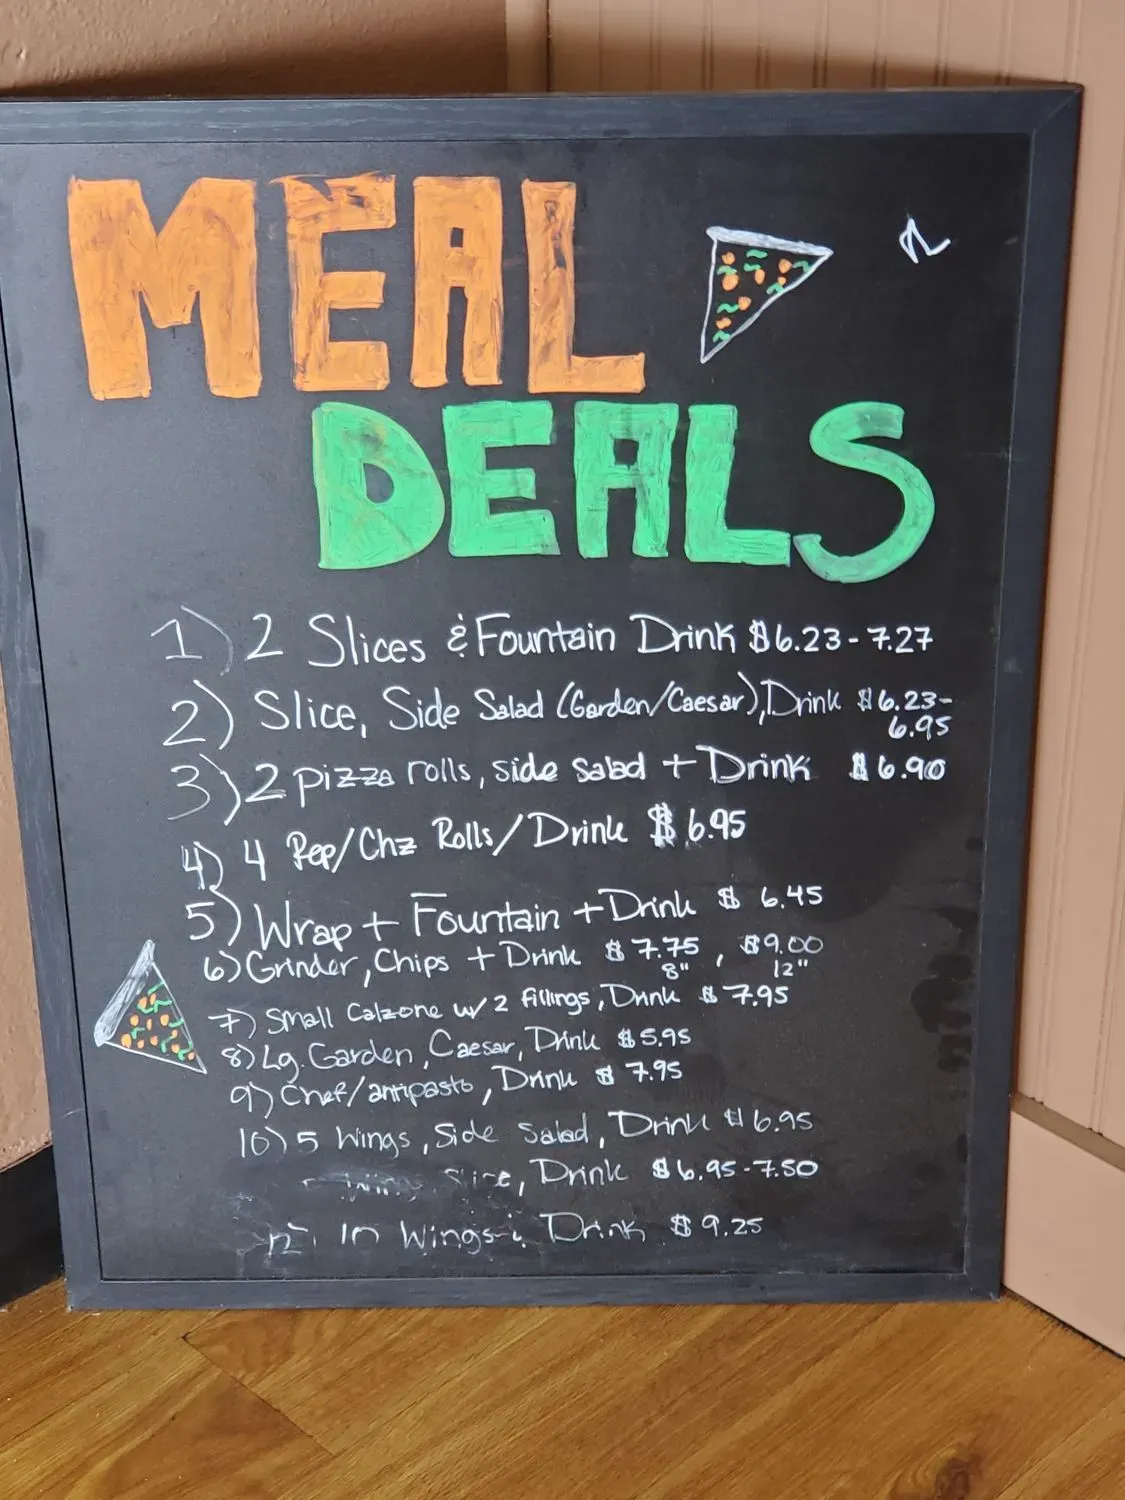 MEAL
DEALS
1) 2 Slices & Fountain Drink $6.23-7.27
2) Slice, Side Salad (Garden/Caesar), Drink $6.23-
6.95
3) 2 pizza rolls, side salad + Drink $6.90
4) 4 Pep/Chz Rolls/Drink $6.95
5) Wrap + Fountain + Drink $6.45
6) Grinder, Chips + Drink $7.75, $9.00
8" 12"
7) Small Calzone w/ 2 fillings, Drink $7.95
8) Lg. Garden, Caesar, Drink $5.95
9) Chef/antipasto, Drink $7.95
10) 5 Wings, Side Salad, Drink $6.95
Wing Slice, Drink $6.95-7.50
12 10 Wings Drink $9.25